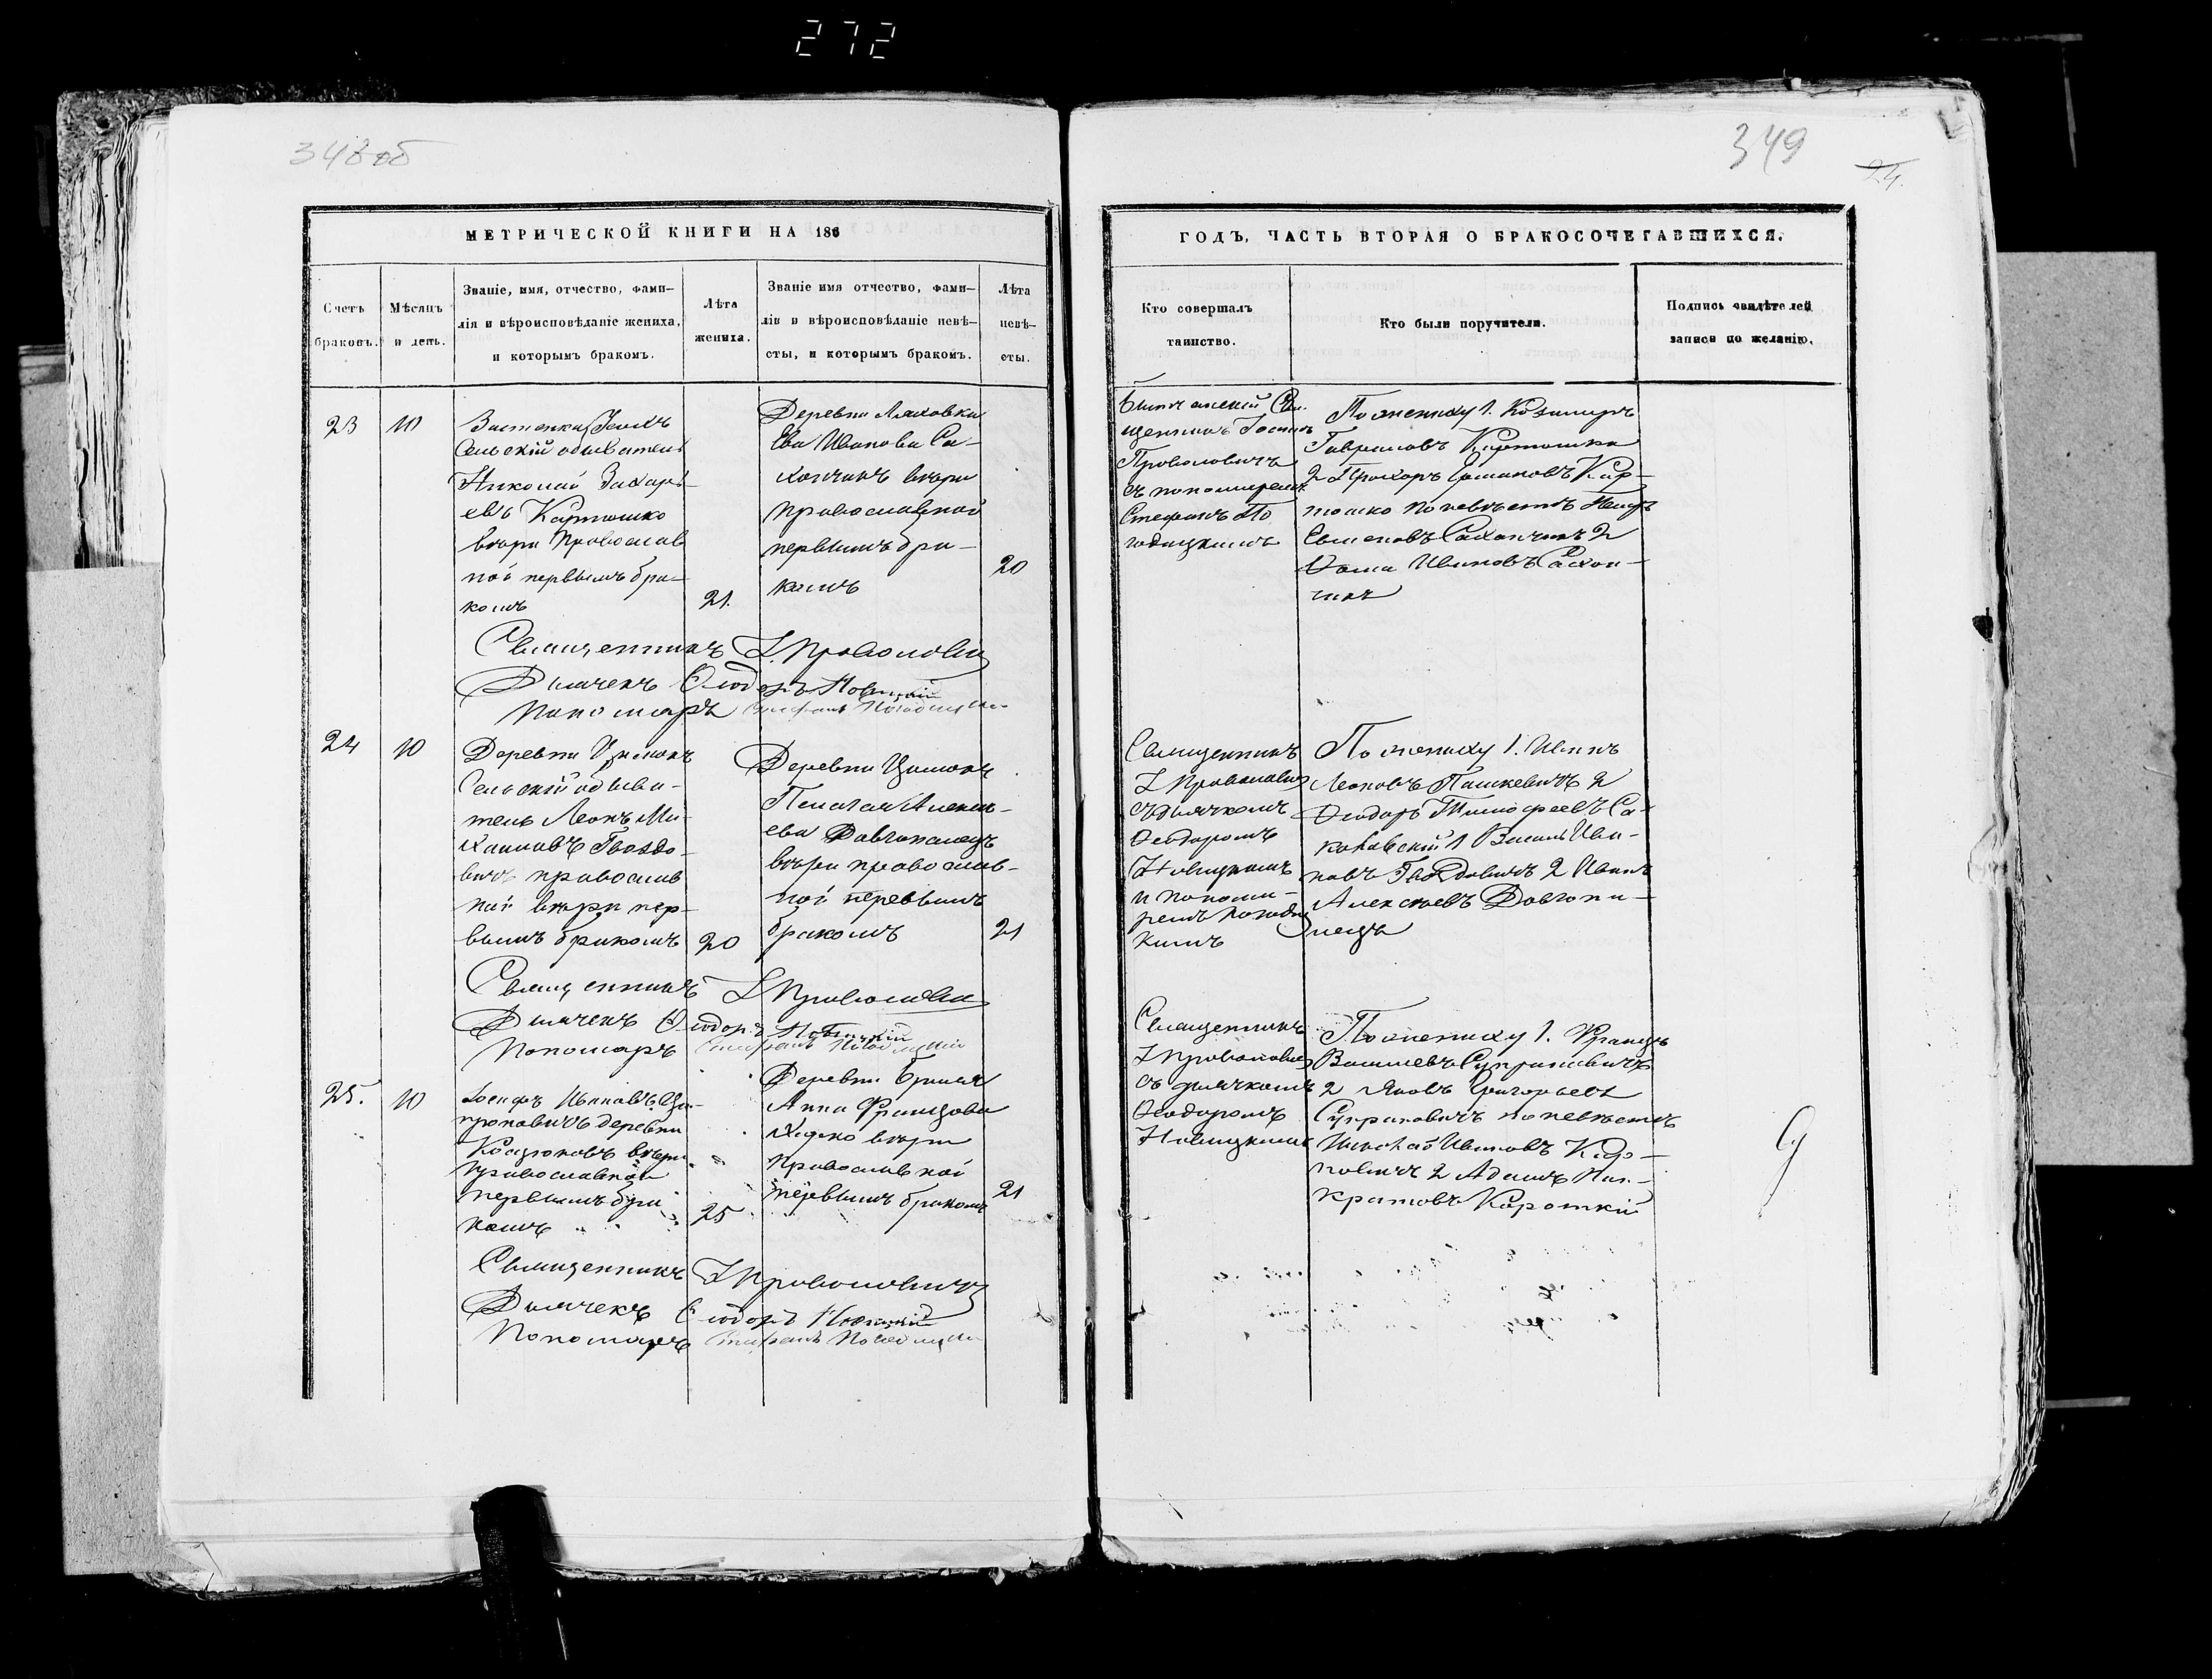 272
348 об
349
24.
МЕТРИЧЕСКОЙ КНИГИ НА 186
ГОДЪ, ЧАСТЬ ВТОРАЯ О БРАКОСОЧЕТАВШИХСЯ.
Счетъ
браковъ.
Мѣсяцъ
и день.
Званіе, имя, отчество, фами-
лія и вѣроисповѣданіе жениха,
и которымъ бракомъ.
Лѣта
жениха.
Званіе имя отчество, фами-
лія и вѣроисповѣданіе невѣ-
сты, и которымъ бракомъ.
Лѣта
невѣ-
сты.
Кто совершалъ
таинство.
Кто были поручители.
Подпись свидѣтелей
записи по желанію.
23
10
Застенка
Сельскій обыватель
Николай Захарь-
евъ Картошко
вѣры православ
ной первымъ бра-
комъ
21.
Деревни Ляховки
Ева Иванова Са-
хончикъ вѣры
православной
первымъ бра-
комъ
20
Свя-
щенникъ
Проволовичъ
съ пономаремъ
Стефаномъ По
годицкимъ
По жениху 1. Казимиръ
Гавриловъ Картошка
2 Прохоръ Картошко по невѣстѣ
Семеновъ Сахончикъ 2
Ѳома Ивановъ Сахон-
чикъ
Священникъ I. Проволовичъ
Дьячекъ Ѳеодоръ Новицкій
Пономарь Стефанъ Погодицкій
24
10
Деревни
Сельскій обыва-
тель Леонъ Ми-
хаиловъ Гвоздо-
вичъ православ
ной вѣры пер-
вымъ бракомъ
20
Деревни
Пелагея Алексѣ-
ева Довгопалецъ
вѣры православ-
ной первымъ
бракомъ
21
Священникъ
I Проволовичъ
съ дьячкомъ
Ѳеодоромъ
Новицкимъ
и понома-
ремъ Погодиц
кимъ
По жениху 1. Иванъ
Леоновъ Пашкевичъ 2
Ѳеодоръ Тимофеевъ Са-
ковскій 1 Василій Ива-
новъ Гвоздовичъ 2 Иванъ
Алексѣевъ Довгопа-
лецъ
Священникъ I Проволовичъ
Дьячекъ Ѳеодоръ Новицкій
Пономарь Стефанъ Погодицкій
25.
10
Іосифъ Ивановъ Ца-
проновичъ деревни
Косцюковъ вѣры
православной
первымъ бра
комъ
25
Деревни
Анна Францова
Ходько вѣры
православной
первымъ бракомъ
21
Священникъ
I Проволовичъ
съ дьячкомъ
Ѳеодоромъ
Новицкимъ
По жениху 1. Францъ
Васильевъ Супрановичъ
2 Яковъ Григорьевъ
Супрановичъ по невѣстѣ
Николай Ивановъ
2 Адамъ Пан-
кратовъ Короткій
9
Священникъ I Проволовичъ
Дьячекъ Ѳеодоръ Новицкій
Пономарь Стефанъ Погодицкій